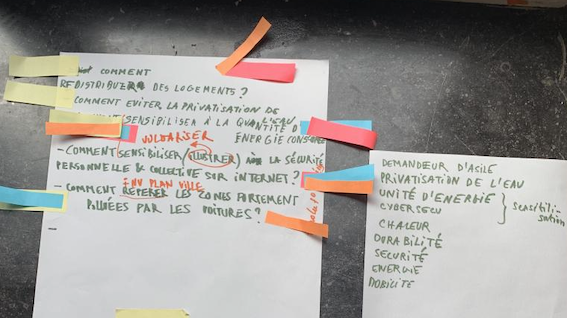 COMMENT
REDISTRIBUER DES LOGEMENTS?
COMMENT EVITER LA PRIVATISATION DE
L'EAU
SENSIBILISER À LA
QUANTITÉ D
ENERGIE CONSOMM
VULGARISER
- COMMENT SENSIBILISER (ILLUSTRER) LA SÉCURITÉ
PERSONNELLE & COLLECTIVE SUR INTERNET?
SUR PLAN VILLE
- COMMENT REPERER LES ZONES FORTEMENT
POLLUÉES PAR LES VOITURES?
DEMANDEUR D'ASILE
PRIVATISATION DE L'EAU
UNITÉ D'ENERGIE
CYBERSECU
sensibili-
sation
CHALEUR
DURABILITÉ
SECURITÉ
ENERGIE
MOBILITÉ